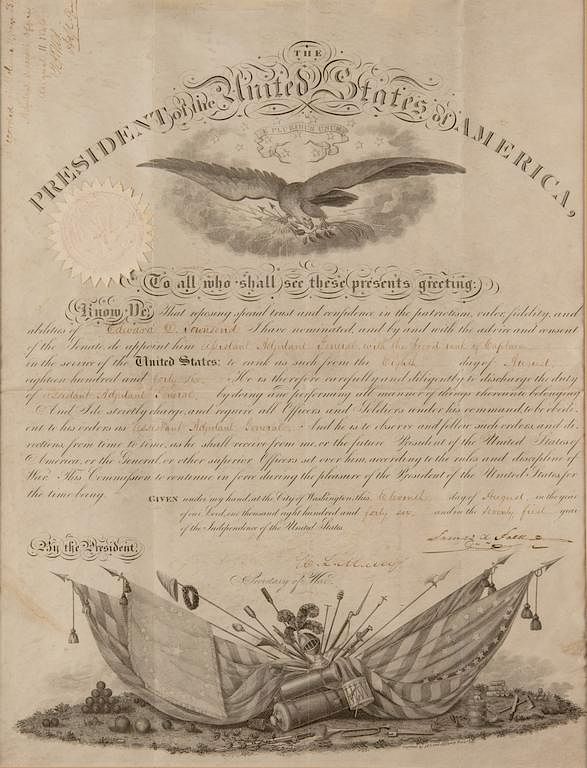 THE
PRESIDENT of the United States of AMERICA,
E PLURIBUS UNUM
To all who shall see these presents greeting:
Know Ye, That reposing special trust and confidence in the patriotism, valor, fidelity, and
abilities of Edward D. Townsend I have nominated and by and with the advice and consent
of the Senate do appoint him Assistant Adjutant General, with the brevet rank of Captain
in the service of the United States: to rank as such from the Eighth day of August
eighteen hundred and forty six. He is therefore carefully and diligently to discharge the duty
of Assistant Adjutant General, by doing and performing all manner of things thereunto belonging.
And I do strictly charge, and require all Officers and Soldiers under his command to be obedi-
ent to his orders as Assistant Adjutant General. And he is to observe and follow such orders, and di-
rections, from time to time, as he shall receive from me, or the future President of the United States of
America, or the General, or other superior Officers set over him, according to the rules and discipline of
War. This Commission to continue in force during the pleasure of the President of the United States for
the time being.
GIVEN under my hand at the City of Washington this Eleventh day of August in the year
of our Lord, one thousand eight hundred and forty six and in the seventy first year
of the Independence of the United States.
James K Polk
By the President.
W. L. Marcy
Secretary of War.